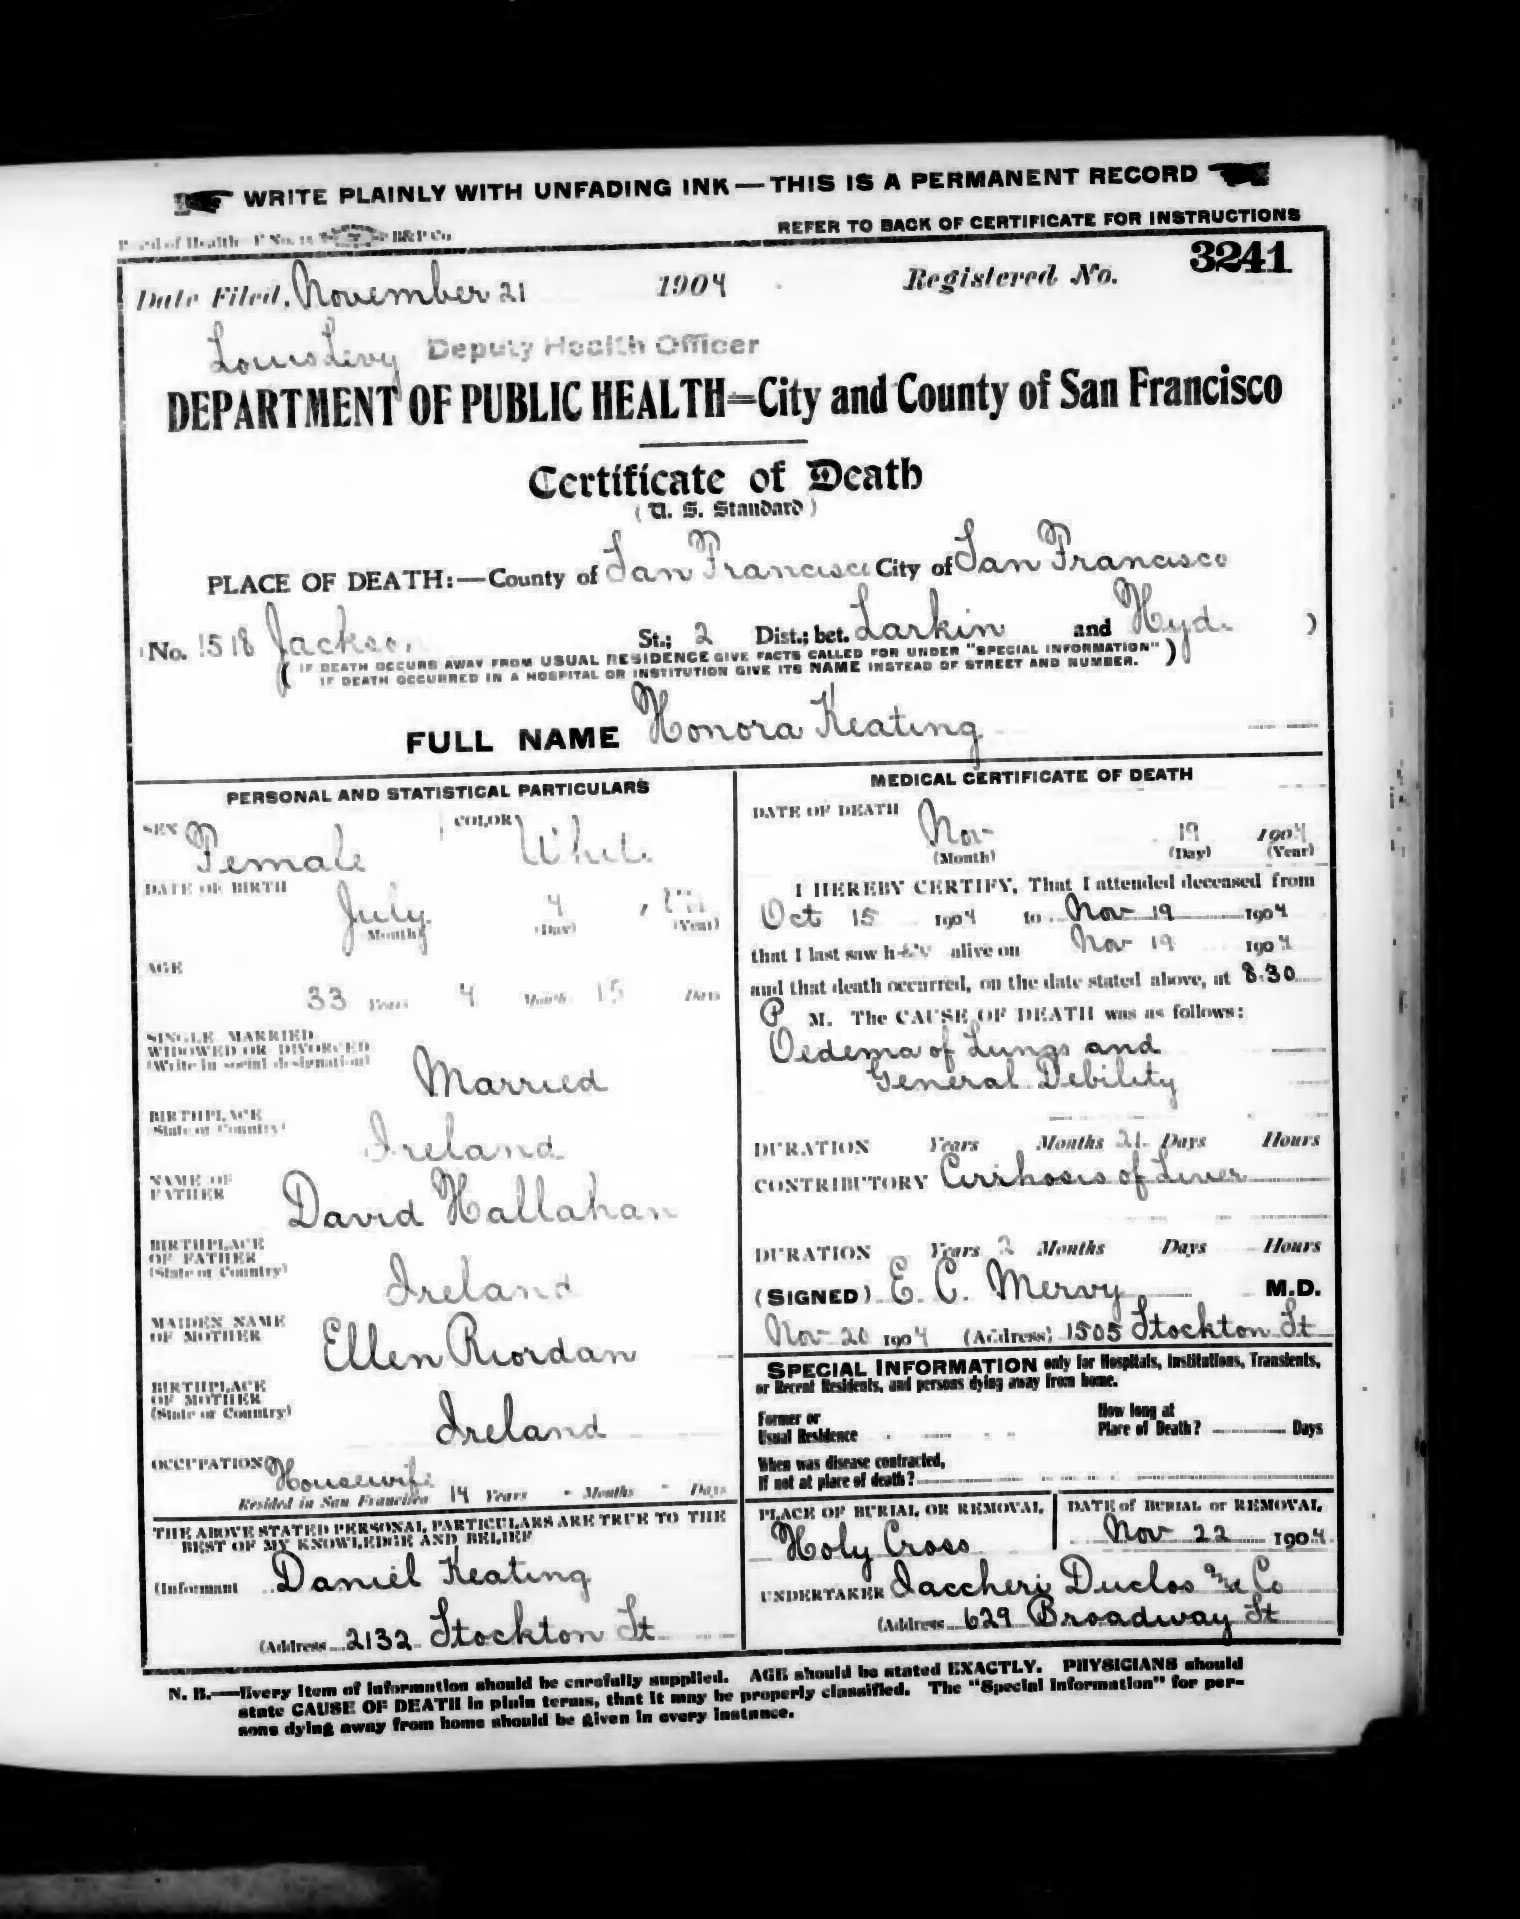 WRITE PLAINLY WITH UNFADING INK — THIS IS A PERMANENT RECORD
Board of Health F No. B&P Co
REFER TO BACK OF CERTIFICATE FOR INSTRUCTIONS
Date Filed, November 21 1904 Registered No. 3241
Louis Levy Deputy Health Officer
DEPARTMENT OF PUBLIC HEALTH=City and County of San Francisco
Certificate of Death
(U. S. Standard)
PLACE OF DEATH:—County of San Francisco City of San Francisco
No. 1518 Jackson St.; 2 Dist.; bet. Larkin and Hyde )
( IF DEATH OCCURS AWAY FROM USUAL RESIDENCE GIVE FACTS CALLED FOR UNDER "SPECIAL INFORMATION" )
IF DEATH OCCURRED IN A HOSPITAL OR INSTITUTION GIVE ITS NAME INSTEAD OF STREET AND NUMBER.
FULL NAME Honora Keating
PERSONAL AND STATISTICAL PARTICULARS
SEX Female COLOR White
DATE OF BIRTH
July 4
(Month) (Day) (Year)
AGE
33 Years 4 Months 15 Days
SINGLE, MARRIED,
WIDOWED OR DIVORCED
(Write in social designation)
Married
BIRTHPLACE
(State or Country)
Ireland
NAME OF
FATHER
David Hallahan
BIRTHPLACE
OF FATHER
(State or Country)
Ireland
MAIDEN NAME
OF MOTHER
Ellen Riordan
BIRTHPLACE
OF MOTHER
(State or Country)
Ireland
OCCUPATION Housewife
Resided in San Francisco 14 Years - Months - Days
THE ABOVE STATED PERSONAL PARTICULARS ARE TRUE TO THE
BEST OF MY KNOWLEDGE AND BELIEF
(Informant Daniel Keating
(Address 2132 Stockton St
MEDICAL CERTIFICATE OF DEATH
DATE OF DEATH
Nov 19 1904
(Month) (Day) (Year)
I HEREBY CERTIFY, That I attended deceased from
Oct 15 1904 to Nov 19 1904
that I last saw her alive on Nov 19 1904
and that death occurred, on the date stated above, at 8.30
P M. The CAUSE OF DEATH was as follows:
Oedema of Lungs and
General Debility
DURATION Years Months 21 Days Hours
CONTRIBUTORY Cirrhosis of Liver
DURATION Years 2 Months Days Hours
(SIGNED) E. C. Mervy M.D.
Nov 20 1904 (Address) 1505 Stockton St
SPECIAL INFORMATION only for Hospitals, Institutions, Transients,
or Recent Residents, and persons dying away from home.
Former or
Usual Residence
How long at
Place of Death? Days
When was disease contracted,
If not at place of death?
PLACE OF BURIAL OR REMOVAL
Holy Cross
DATE of BURIAL or REMOVAL
Nov 22 1904
UNDERTAKER Iaccheri Duclos and Co
(Address 629 Broadway St
N. B.—Every item of information should be carefully supplied. AGE should be stated EXACTLY. PHYSICIANS should
state CAUSE OF DEATH in plain terms, that it may be properly classified. The "Special Information" for per-
sons dying away from home should be given in every instance.